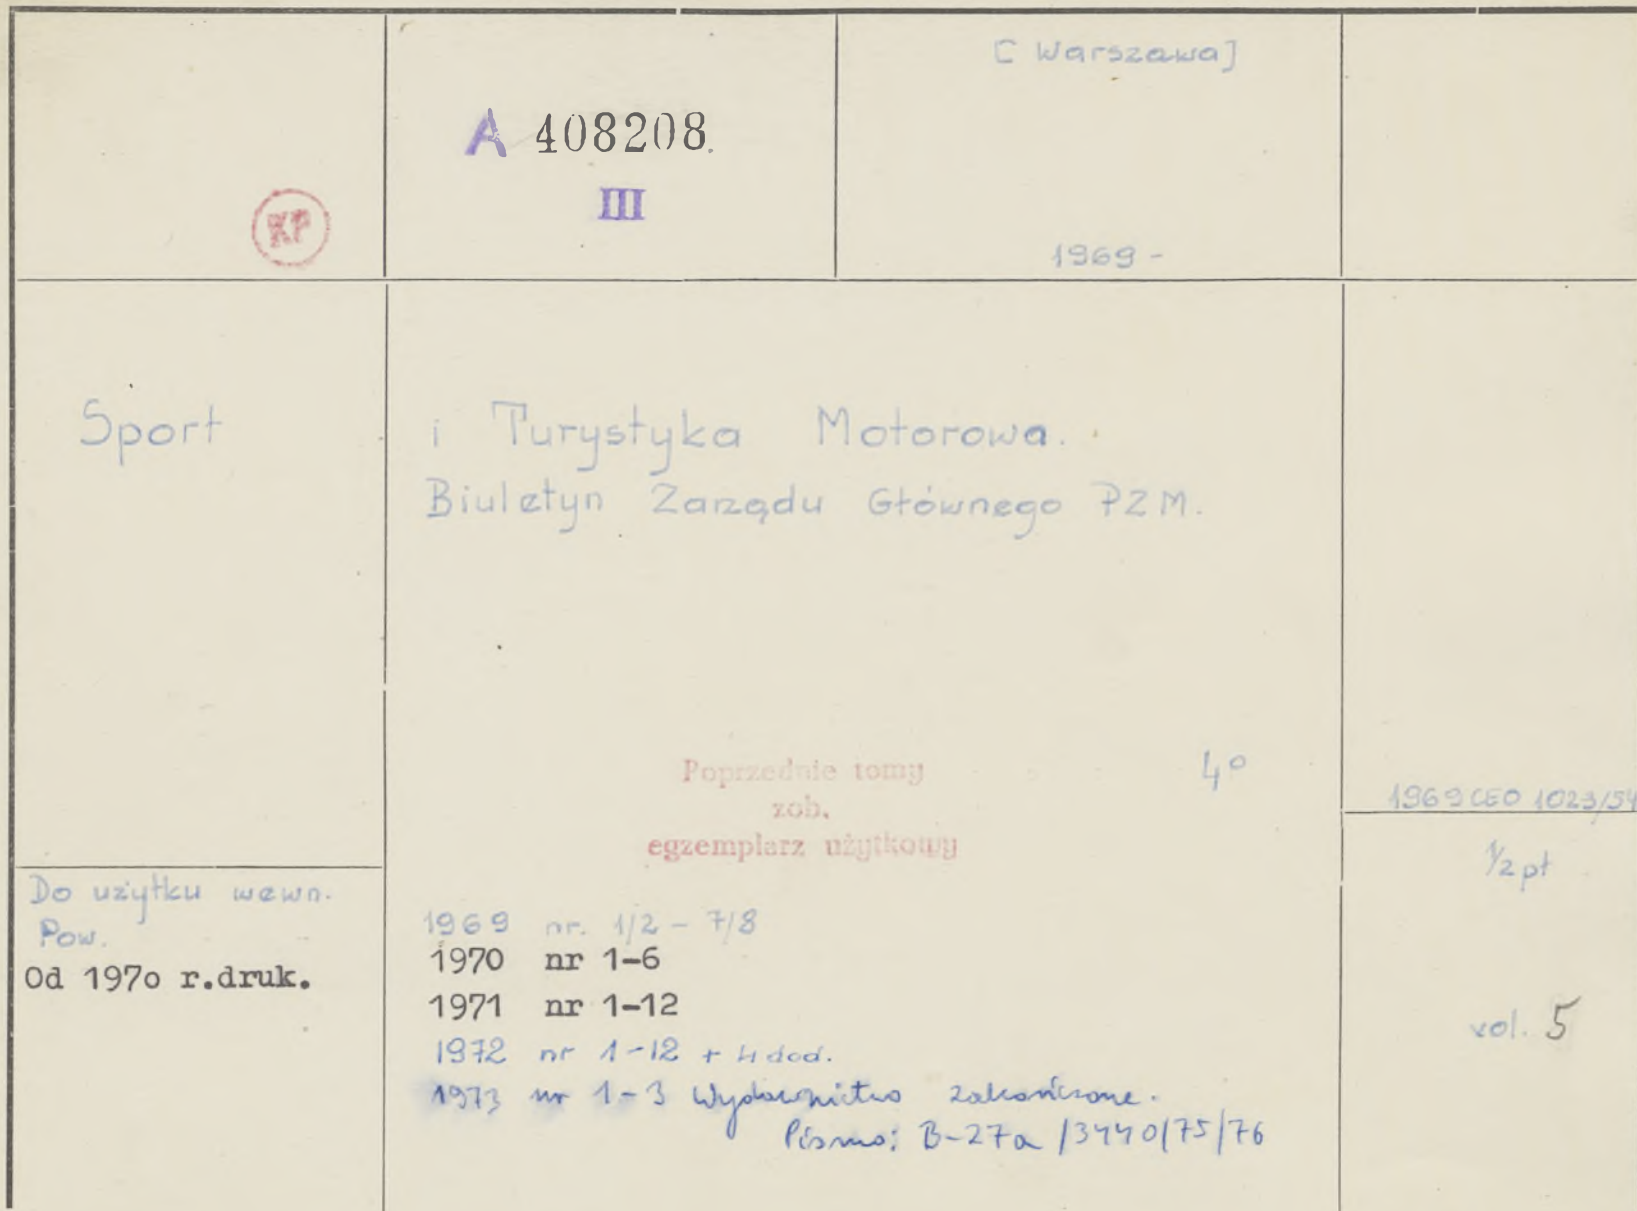 [Warszawa]
A 408208
III
KP
1969 -
Sport i Turystyka Motorowa.
Biuletyn Zarządu Głównego PZM.
Poprzednie tomy
zob.
egzemplarz użytkowy
4°
1969 CEO 1023/54
1/2 pł
Do użytku wewn.
Pow.
Od 1970 r.druk.
1969 nr. 1/2 - 7/8
1970 nr 1-6
1971 nr 1-12
1972 nr 1-12 + 4 dod.
1973 nr 1-3 Wydawnictwo zakończone.
Pismo: B-27a /3440/75/76
vol. 5